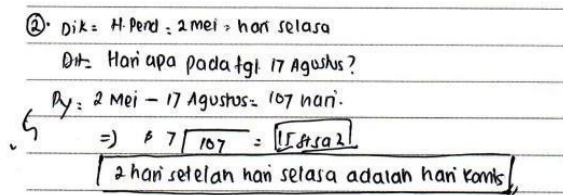 ②. Dik = H. Pend : 2 mei = hari selasa
Dit= Hari apa pada tgl 17 Agustus?
Py : 2 Mei - 17 Agustus = 107 hari.
=) 7 107 = 15 sisa 2
2 hari setelah hari selasa adalah hari kamis